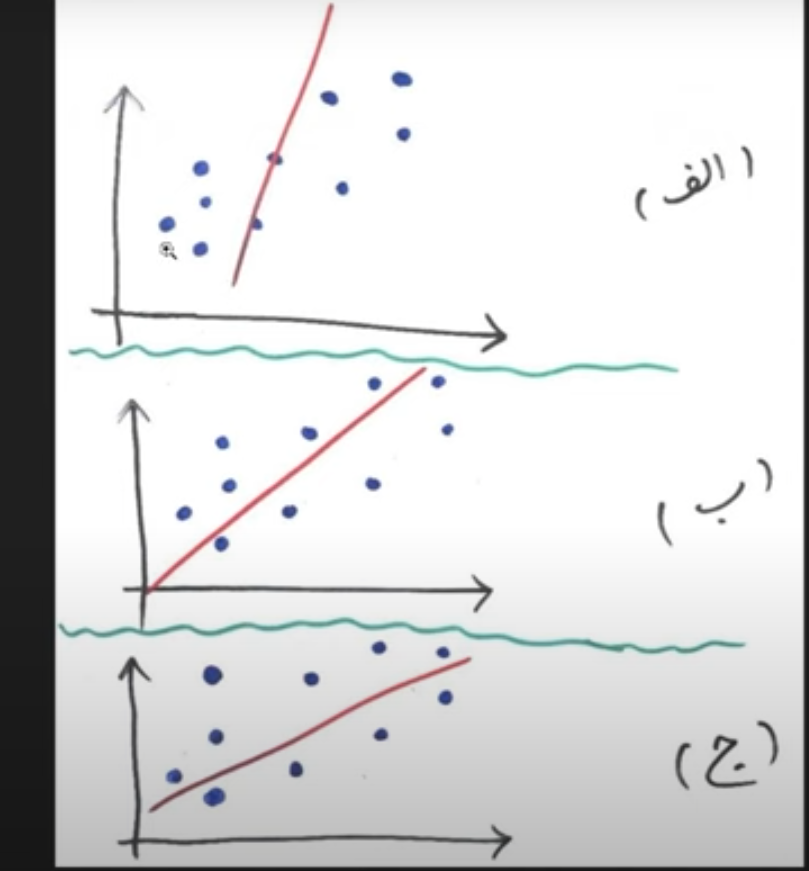 الف)
ب)
ج)